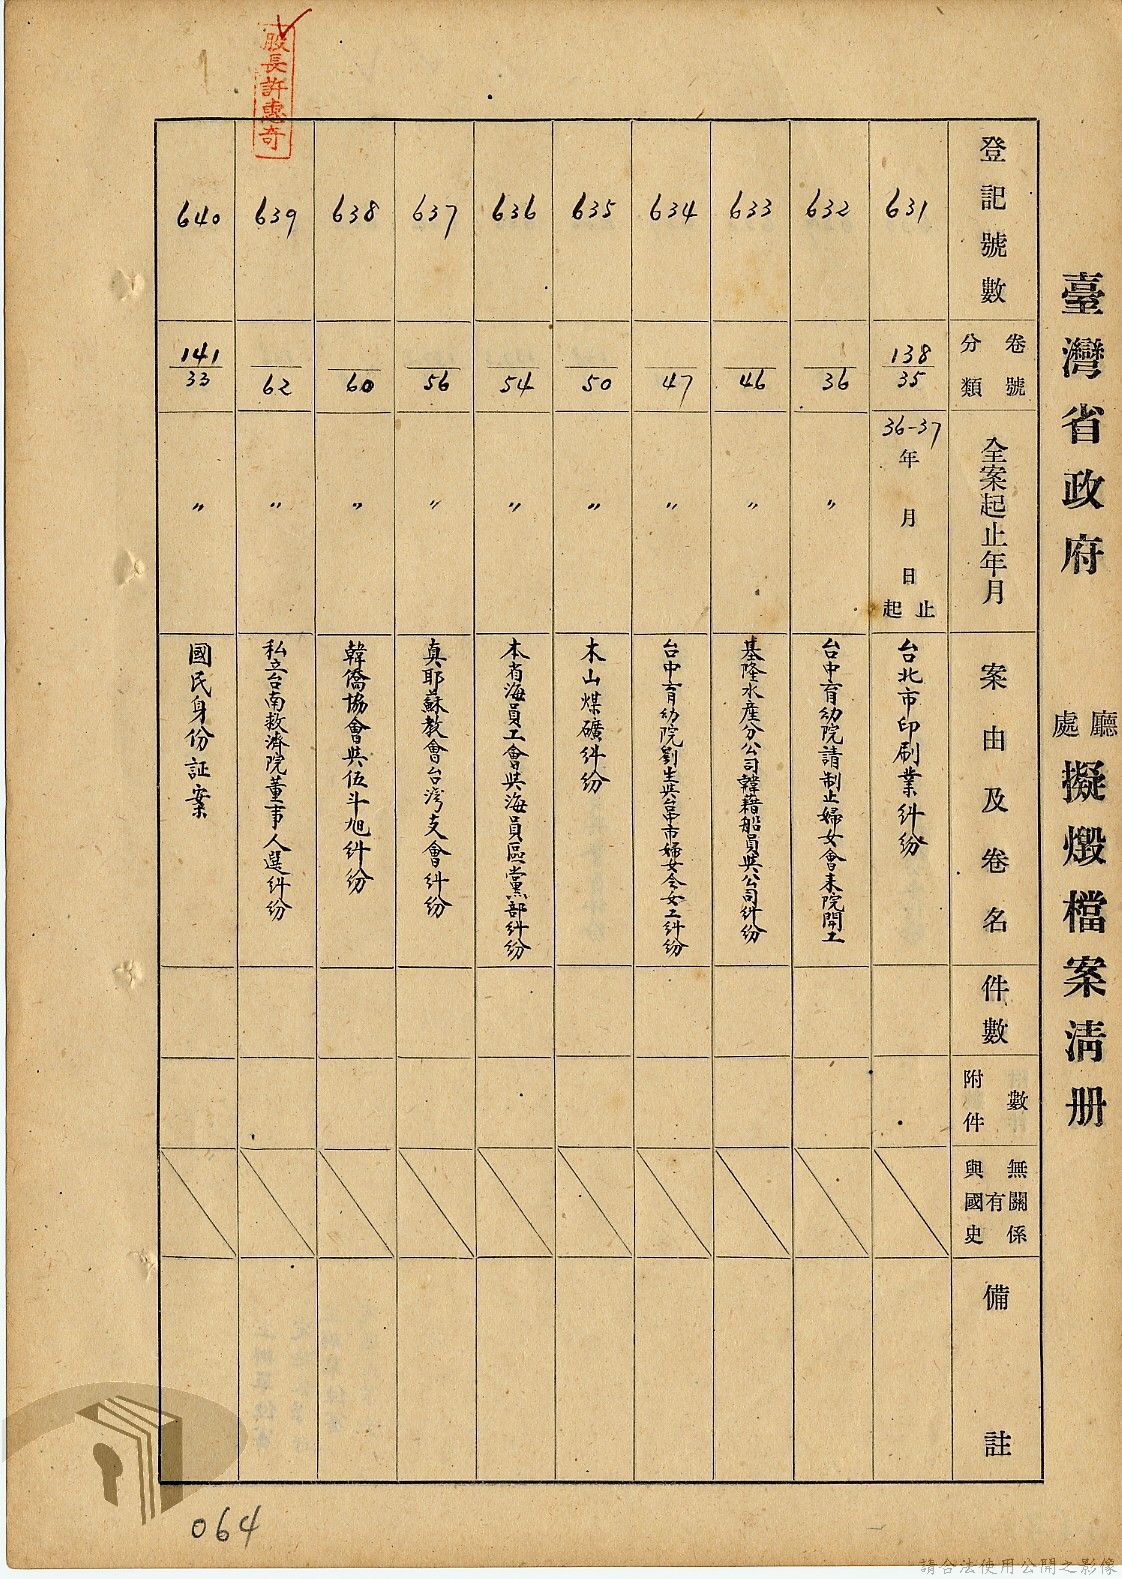 臺灣省政府 廳處 擬燬檔案清册
登記號數
卷號
分類
全案起止年月
案由及卷名
件數
附件數
與國史有無關係
備註
631
138/35
36-37
年 月 日
起 止
台北市印刷業糾紛
632
36
〃
台中育幼院請制止婦女會來院開工
633
46
〃
基隆水產分公司韓藉船員與公司糾紛
634
47
〃
台中育幼院劉生與台中市婦女會女工糾紛
635
50
〃
木山煤礦糾紛
636
54
〃
本省海員工會與海員區黨部糾紛
637
56
〃
真耶蘇教會台灣支會糾紛
638
60
〃
韓僑協會與伍斗旭糾紛
639
62
〃
私立台南救濟院董事人選糾紛
640
141/33
〃
國民身份証案
股長許惠奇
064
請合法使用公開之影像